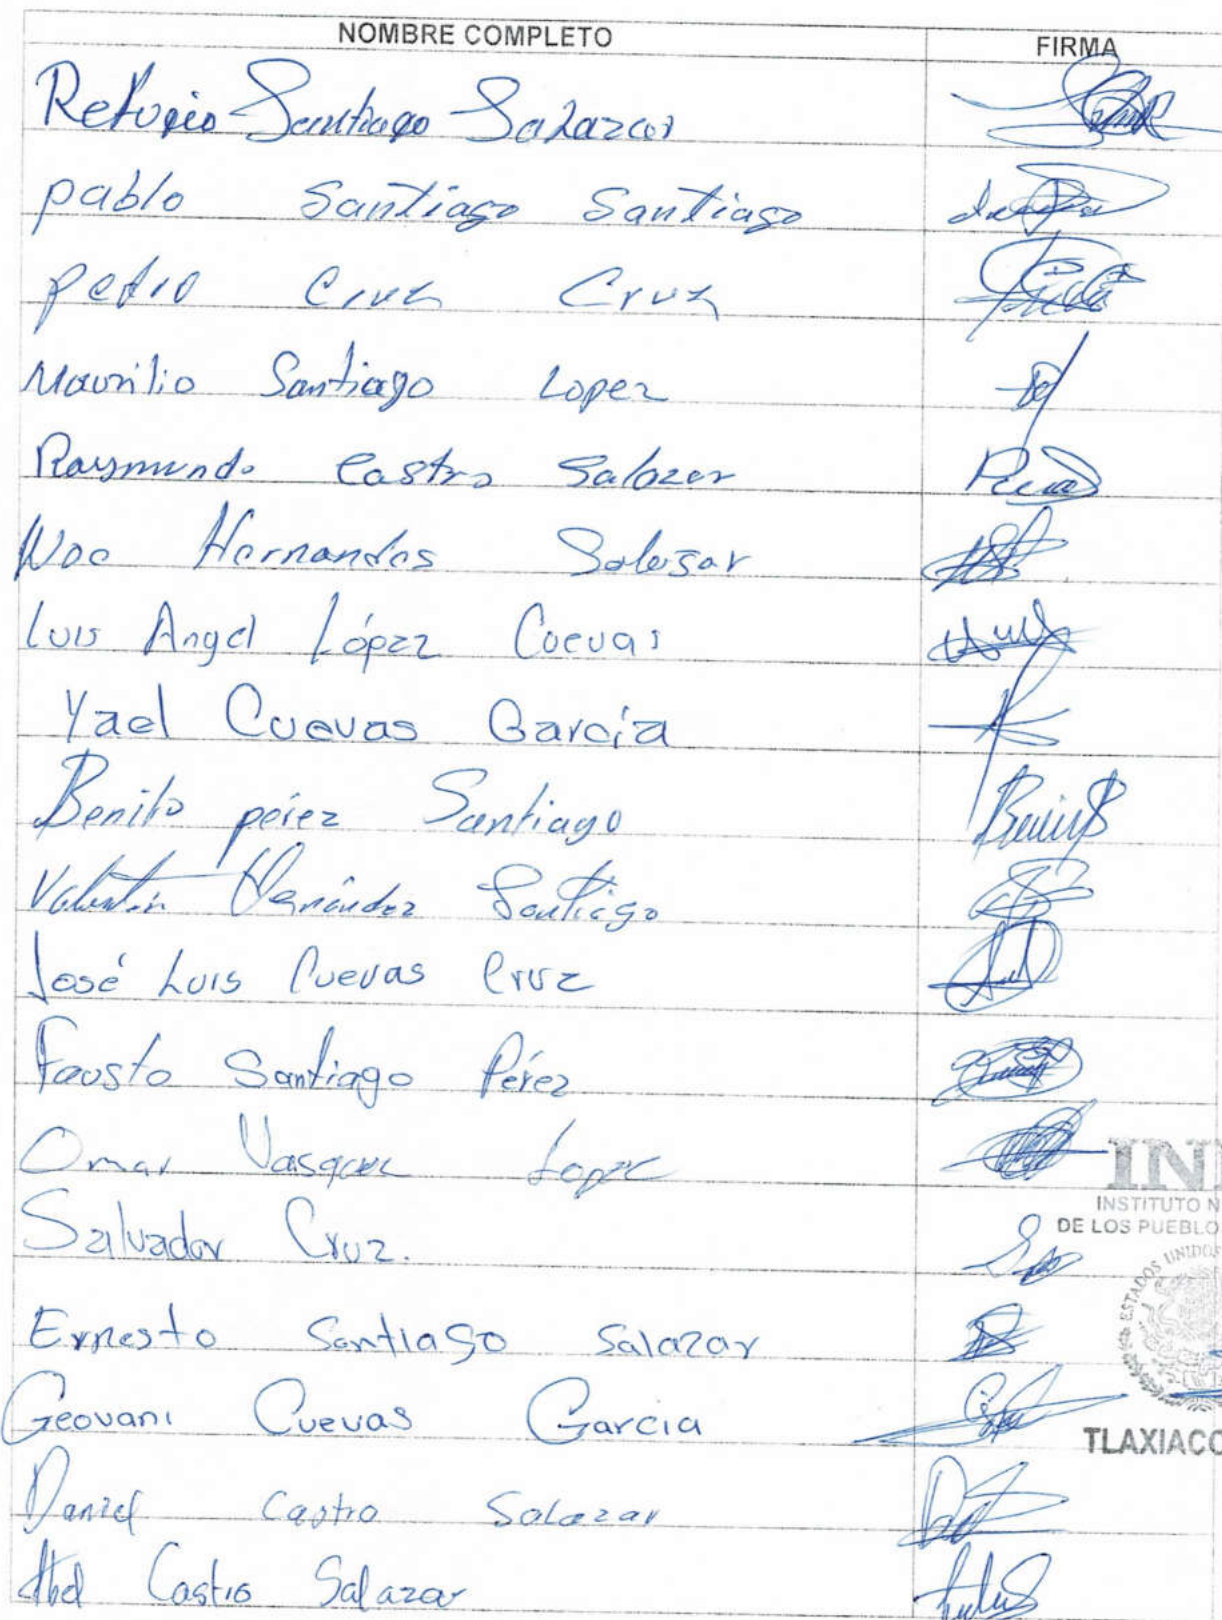 NOMBRE COMPLETO FIRMA
Refugio Santiago Salazar
pablo Santiago Santiago
pedro Cruz Cruz
Maurilio Santiago Lopez
Raymundo Castro Salazar
Noe Hernandes Salasar
Luis Angel López Cuevas
Yael Cuevas García
Benito pérez Santiago
Valentin Hernández Santiago
José Luis Cuevas Cruz
Fausto Santiago Pérez
Omar Vasquez Lopez
Salvador Cruz.
Ernesto Santiago Salazar
Geovani Cuevas Garcia
Daniel Castro Salazar
Abel Castro Salazar
INSTITUTO N
DE LOS PUEBLO
ESTADOS UNIDOS
TLAXIACO